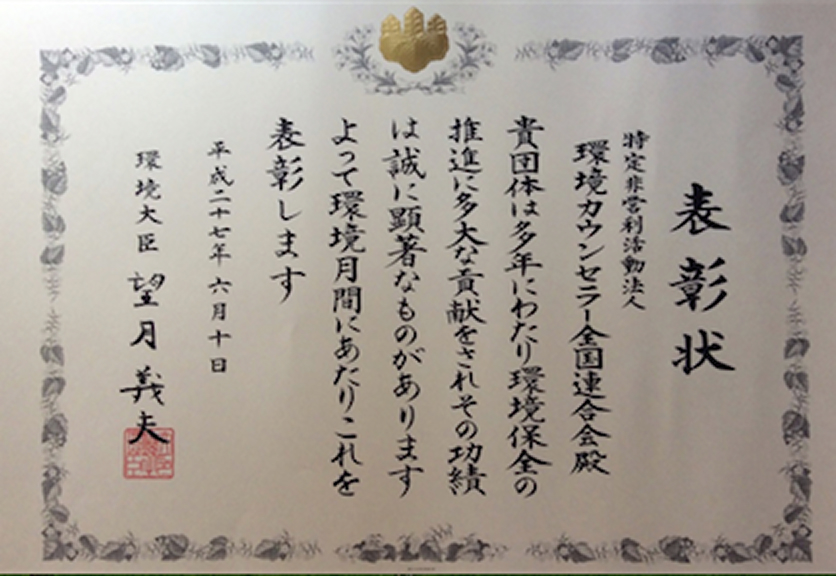 表彰状
特定非営利活動法人
環境カウンセラー全国連合会殿
貴団体は多年にわたり環境保全の
推進に多大な貢献をされその功績
は誠に顕著なものがあります
よって環境月間にあたりこれを
表彰します
平成二十七年六月十日
環境大臣 望月義夫